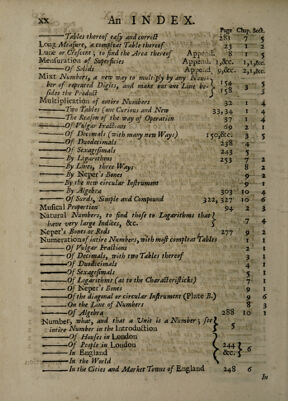 xx An INDEX.
Page Chap. Sect.
—— Tables thereof easy and correct 281 7 5
Long Measure, a compleat Table thereof 23 1 2
Lune or Crescent; to find the Area thereof Append. 8 1 5
Mensuration of Superficies Append. 1,&c. 1,1,&c.
—— Of Solids Append. 9,&c. 2,1,&c.
Mixt Numbers, a new way to multiply by any Num-
ber of repeated Digits, and make but one Line be- 154 3 5
sides the Product 158
Multiplication of entire Numbers 32 1 4
—— Two Tables (one Curious and New 33,34 1 4
—— The Reason of the way of Operation 37 1 4
—— Of Vulgar Fractions 69 2 1
—— Of Decimals (with many new Ways) 150,&c. 3 5
—— Of Duodecimals 238 4
—— Of Sexagesimals 243 5
—— By Logarithms 253 7 2
—— By Lines, three Ways 8 2
—— By Neper's Bones 9 2
—— By the new circular Instrument 9 4
—— By Algebra 303 10 4
—— Of Surds, Simple and Compound 322, 327 10 6
Musical Proportion 94 2 3
Natural Numbers, to find those to Logarithms that
have very large Indices, &c. 7 4
Neper's Bones or Rods 277 9 2
Numeration of intire Numbers, with most compleat Tables 1 1
—— Of Vulgar Fractions 2 1
—— Of Decimals, with two Tables thereof 3 1
—— Of Duodecimals 4 1
—— Of Sexagesimals 5 1
—— Of Logarithms (as to the Characteristicks) 7 1
—— Of Neper's Bones 9 1
—— Of the diagonal or circular Instrument (Plate B.) 9 6
—— On the Line of Numbers 8 3
—— Of Algebra 288 10 1
Number, what, and that a Unit is a Number; for
intire Number in the Introduction 5
—— Of Houses in London
—— Of People in London 244 6
—— In England &c. 5
—— In the World
—— In the Cities and Market Towns of England 248 6
In